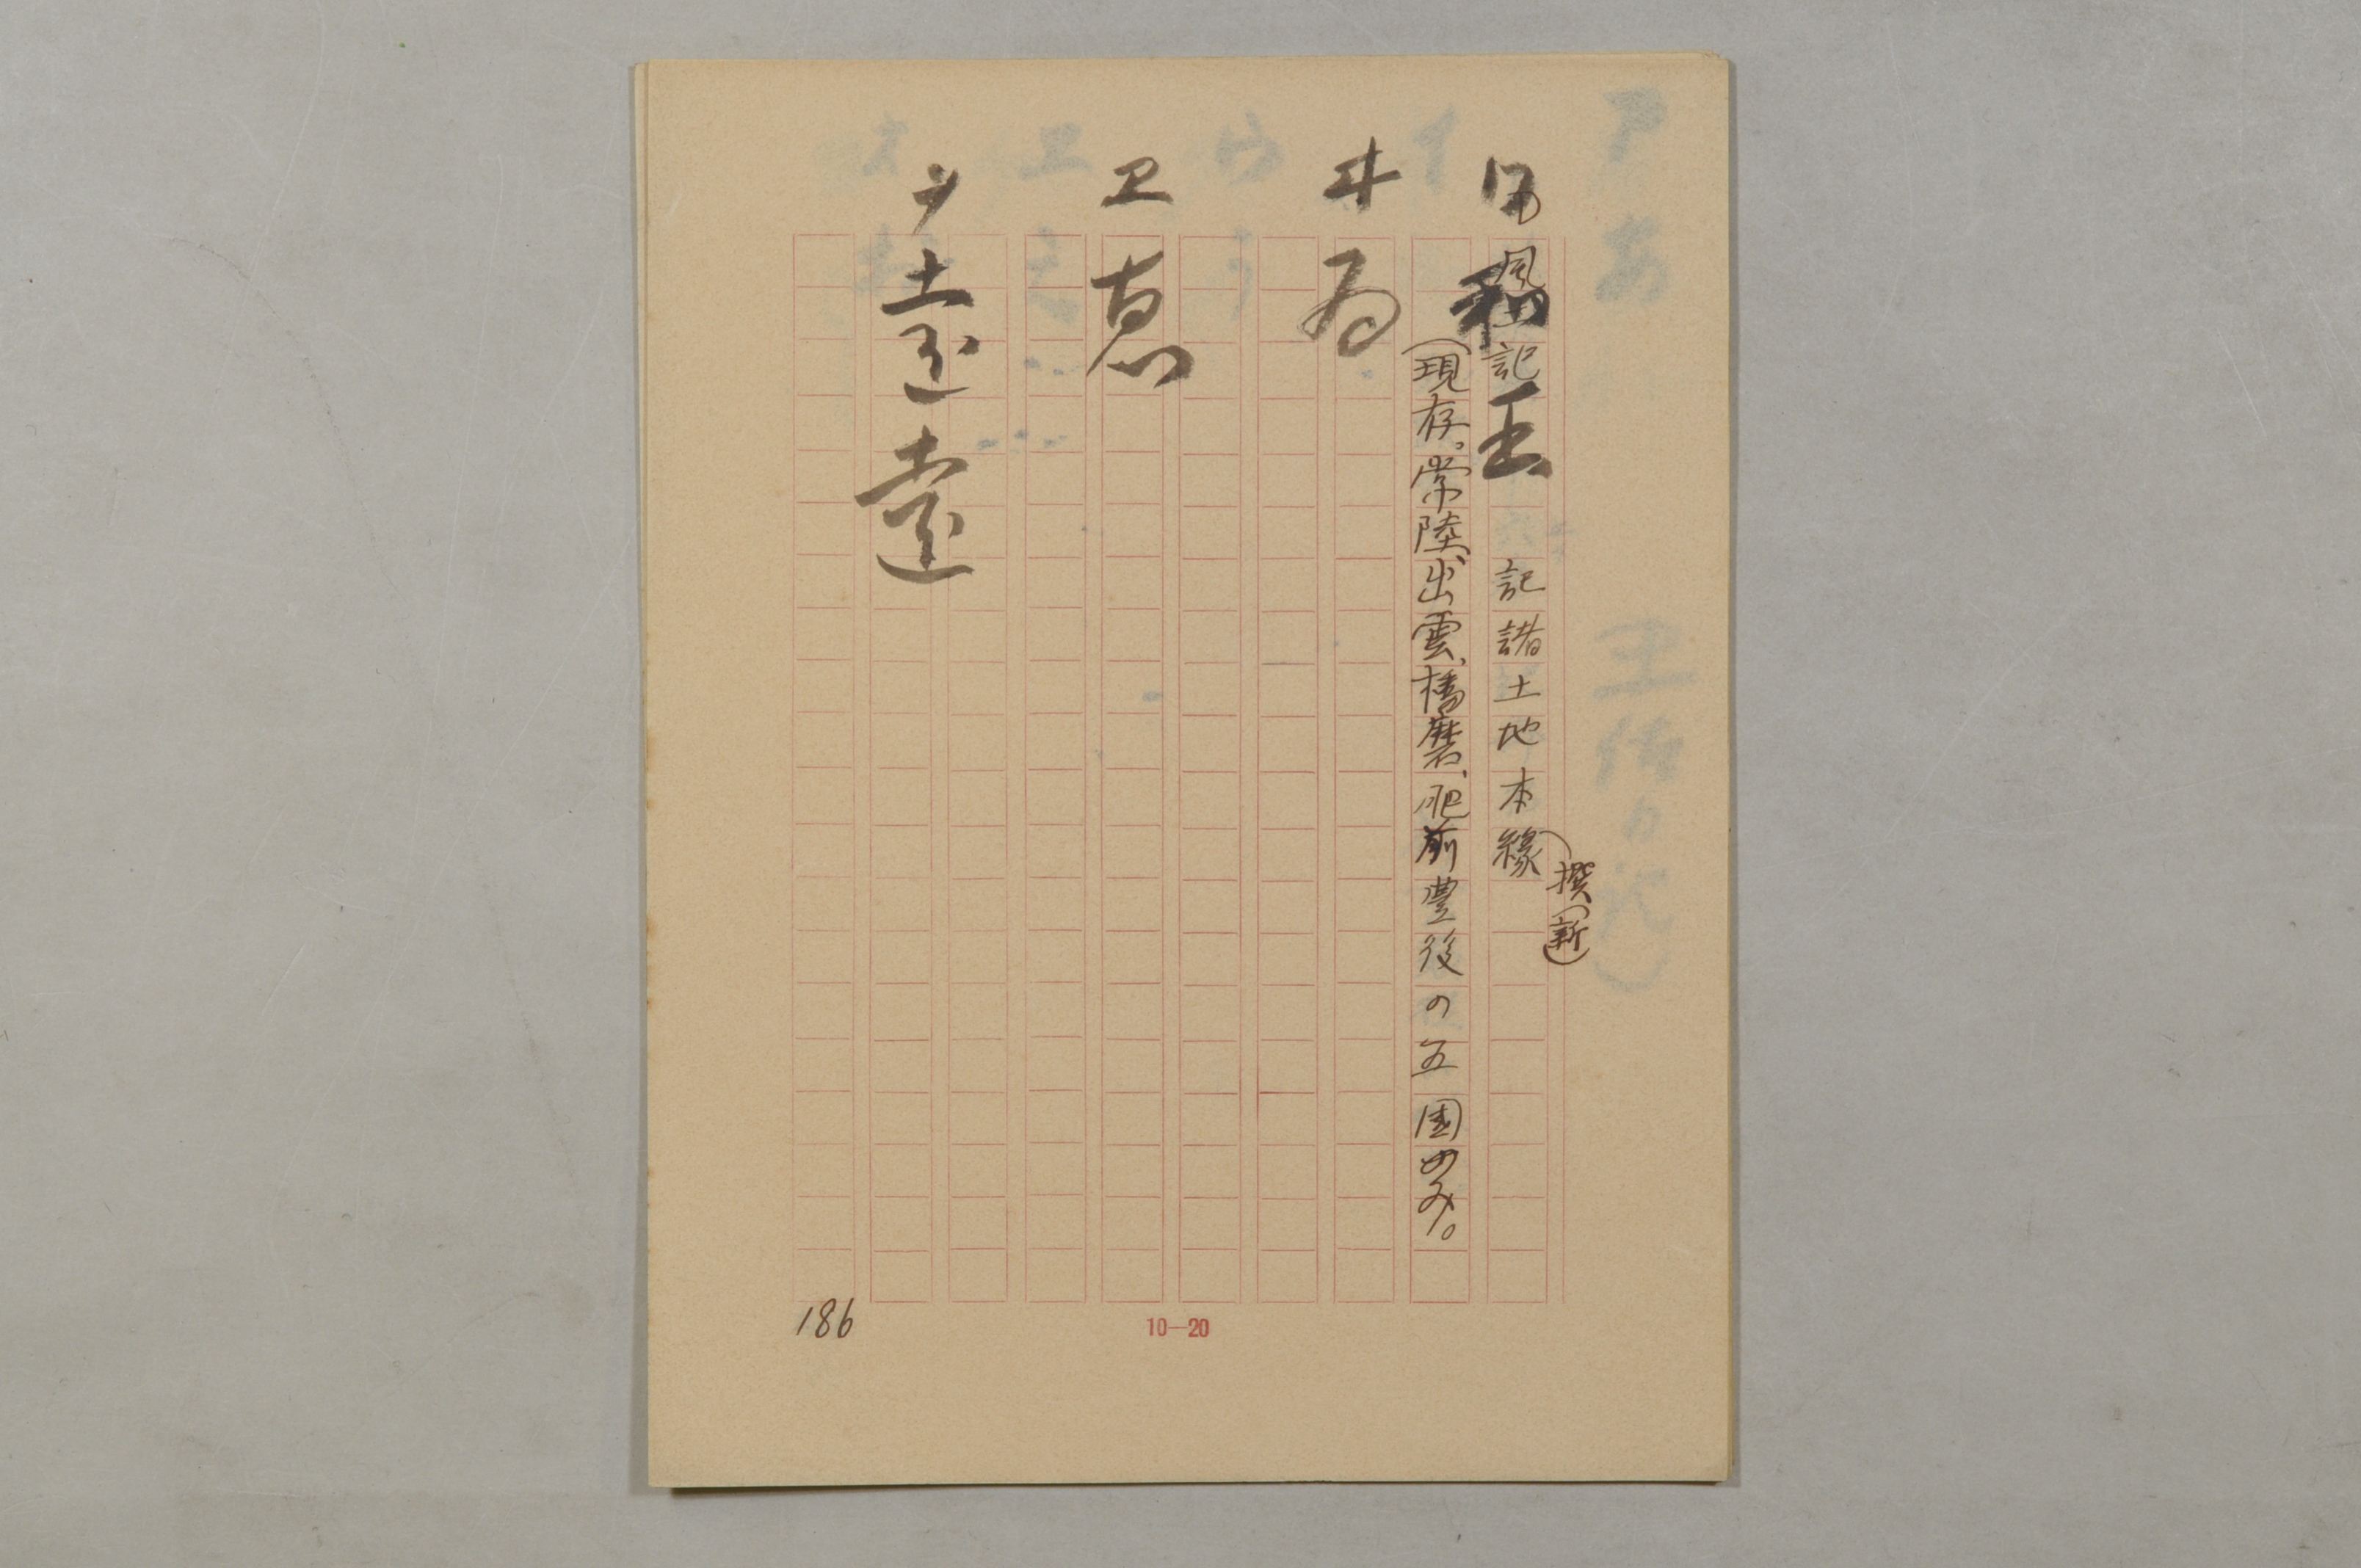 ワ 和 王
記 記諸土地本縁)
撰(新)
(現存。常陸、出雲、播磨、肥前豊後の五国のみ。
ヰ 為
ヱ 恵
ヲ 遠 遠
186
10—20